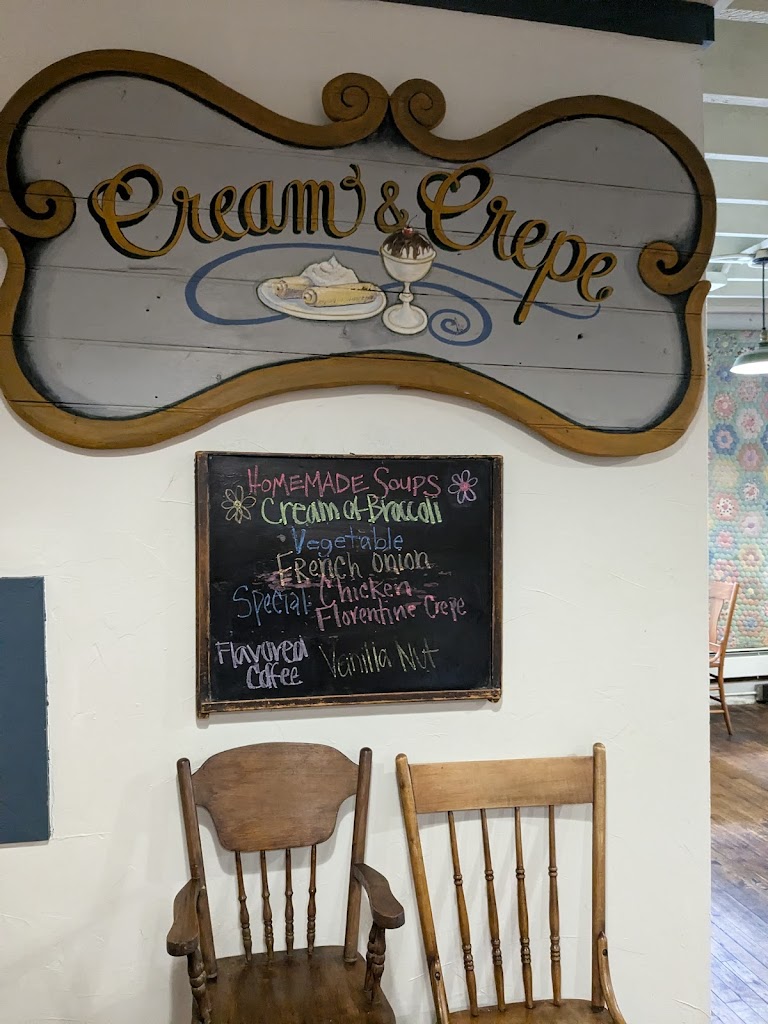 Cream & Crepe
HOMEMADE SOUPS
Cream of Broccoli
Vegetable
FRENCH ONION
Special: Chicken
Florentine Crepe
Flavored
Coffee
Vanilla Nut